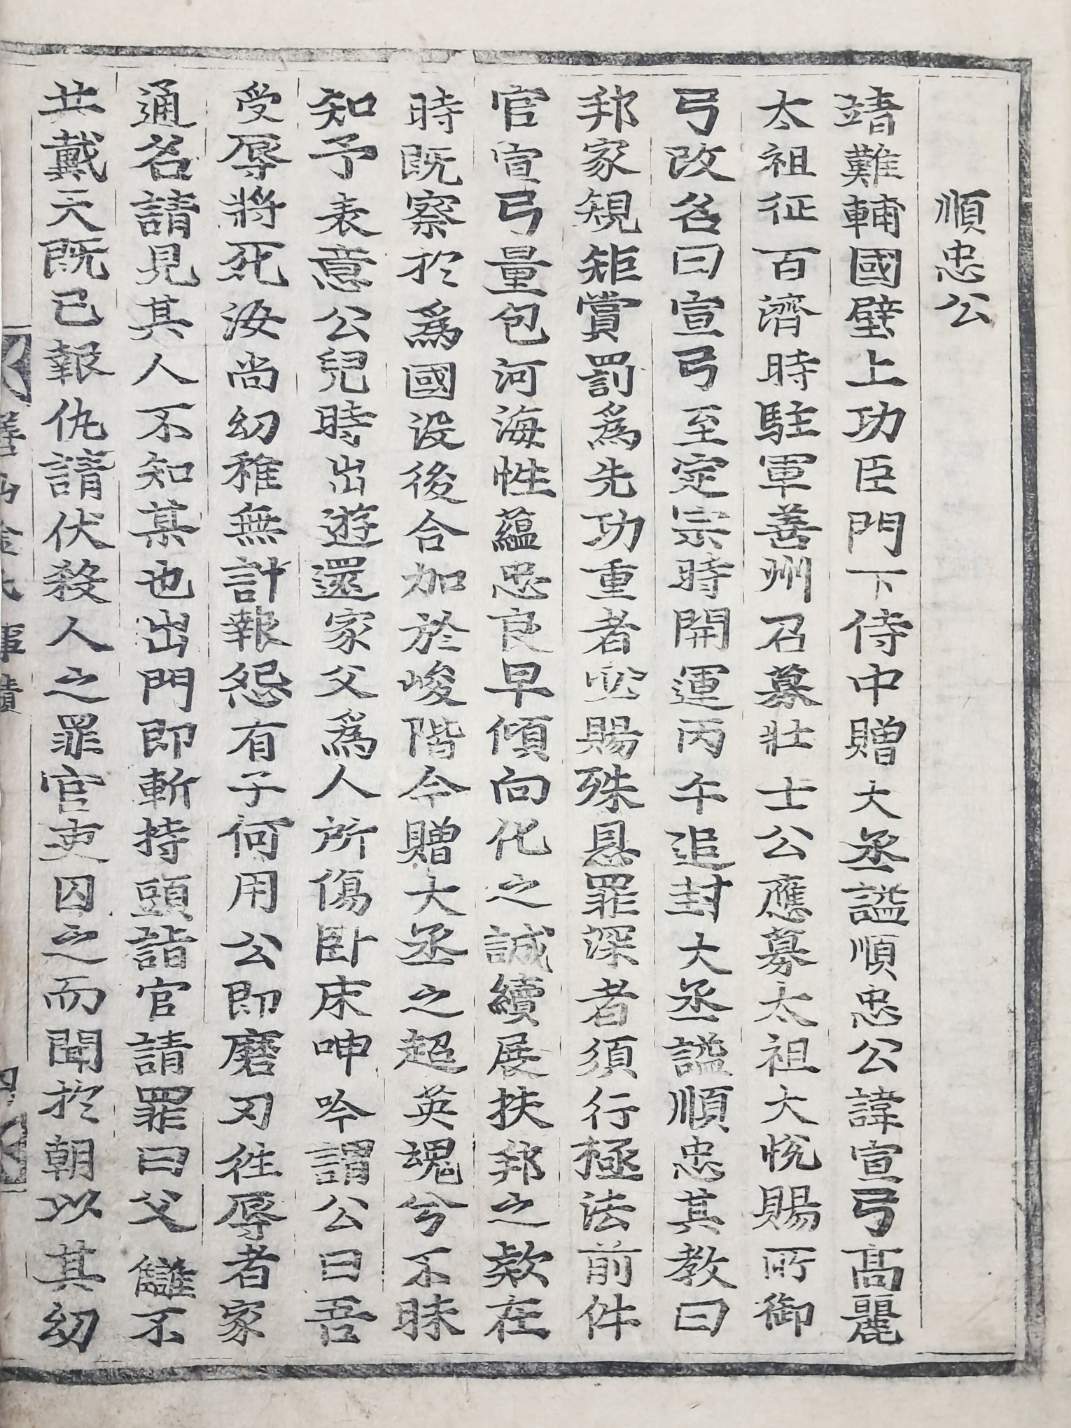 順忠公
靖難輔國壁上功臣門下侍中贈大丞謚順忠公諱宣弓高麗
太祖征百濟時駐軍善州召募壯士公應募太祖大悅賜所御
弓改名曰宣弓至定宗時開運丙午追封大丞謚順忠其教曰
邦家規矩賞罰爲先功重者必賜殊恩罪深者須行極法前件
官宣弓量包河海性蘊忠良早傾向化之誠續展扶邦之欵在
時既察於爲國沒後合加於峻階今贈大丞之超英魂兮不昧
知予表意公兒時出遊還家父爲人所傷臥床呻吟謂公曰吾
受辱將死汝尚幼稚無計報怨有子何用公即磨刃徃辱者家
通名請見其人不知某也出門即斬持頭詣官請罪曰父讎不
共戴天既已報仇請伏殺人之罪官吏囚之而聞於朝以其幼
善山金氏 事蹟 四